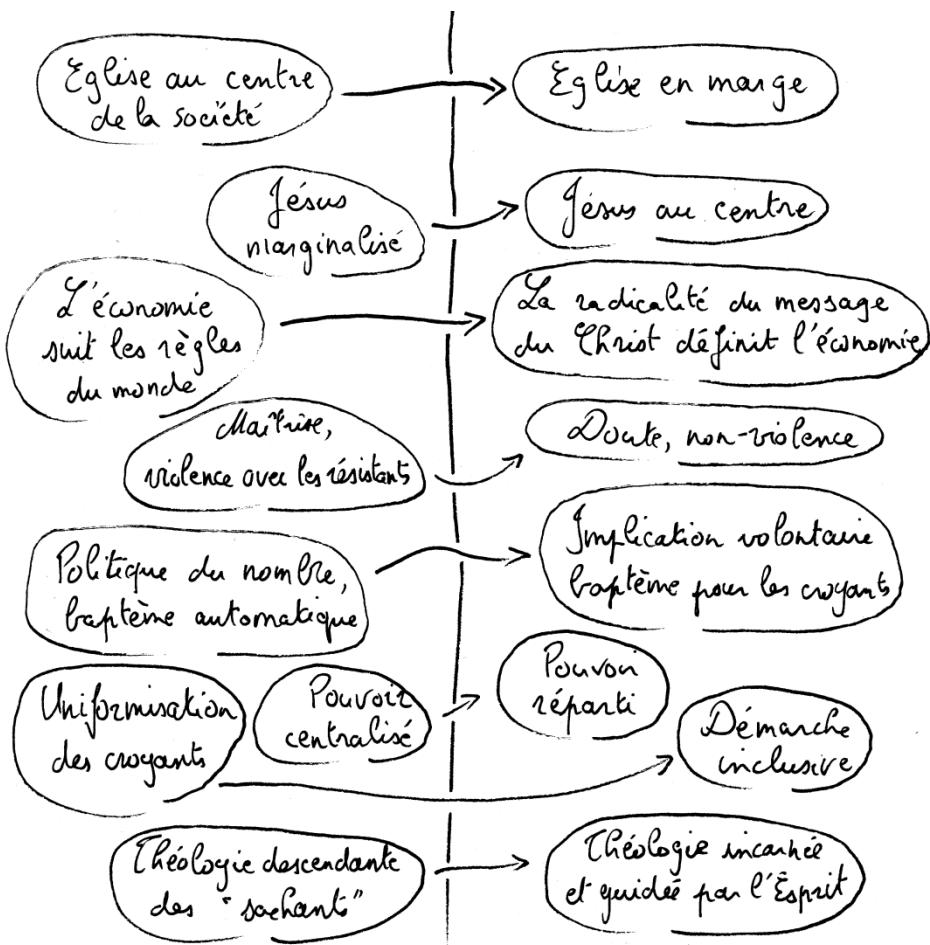 Eglise au centre
de la société
Eglise en marge
Jésus
marginalisé
Jésus au centre
L'économie
suit les règles
du monde
La radicalité du message
du Christ définit l'économie
Maîtrise,
violence avec les résistants
Doute, non-violence
Politique du nombre,
baptème automatique
Implication volontaire
baptème pour les croyants
Uniformisation
des croyants
Pouvoir
centralisé
Pouvoir
réparti
Démarche
inclusive
Théologie descendante
des "sachants"
Théologie incarnée
et guidée par l'Esprit